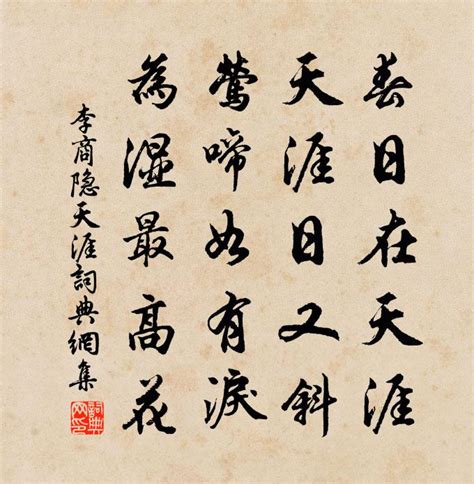 春日在天涯
天涯日又斜
鶯啼如有淚
為濕最高花
李商隐天涯詞典網集
詞典網印